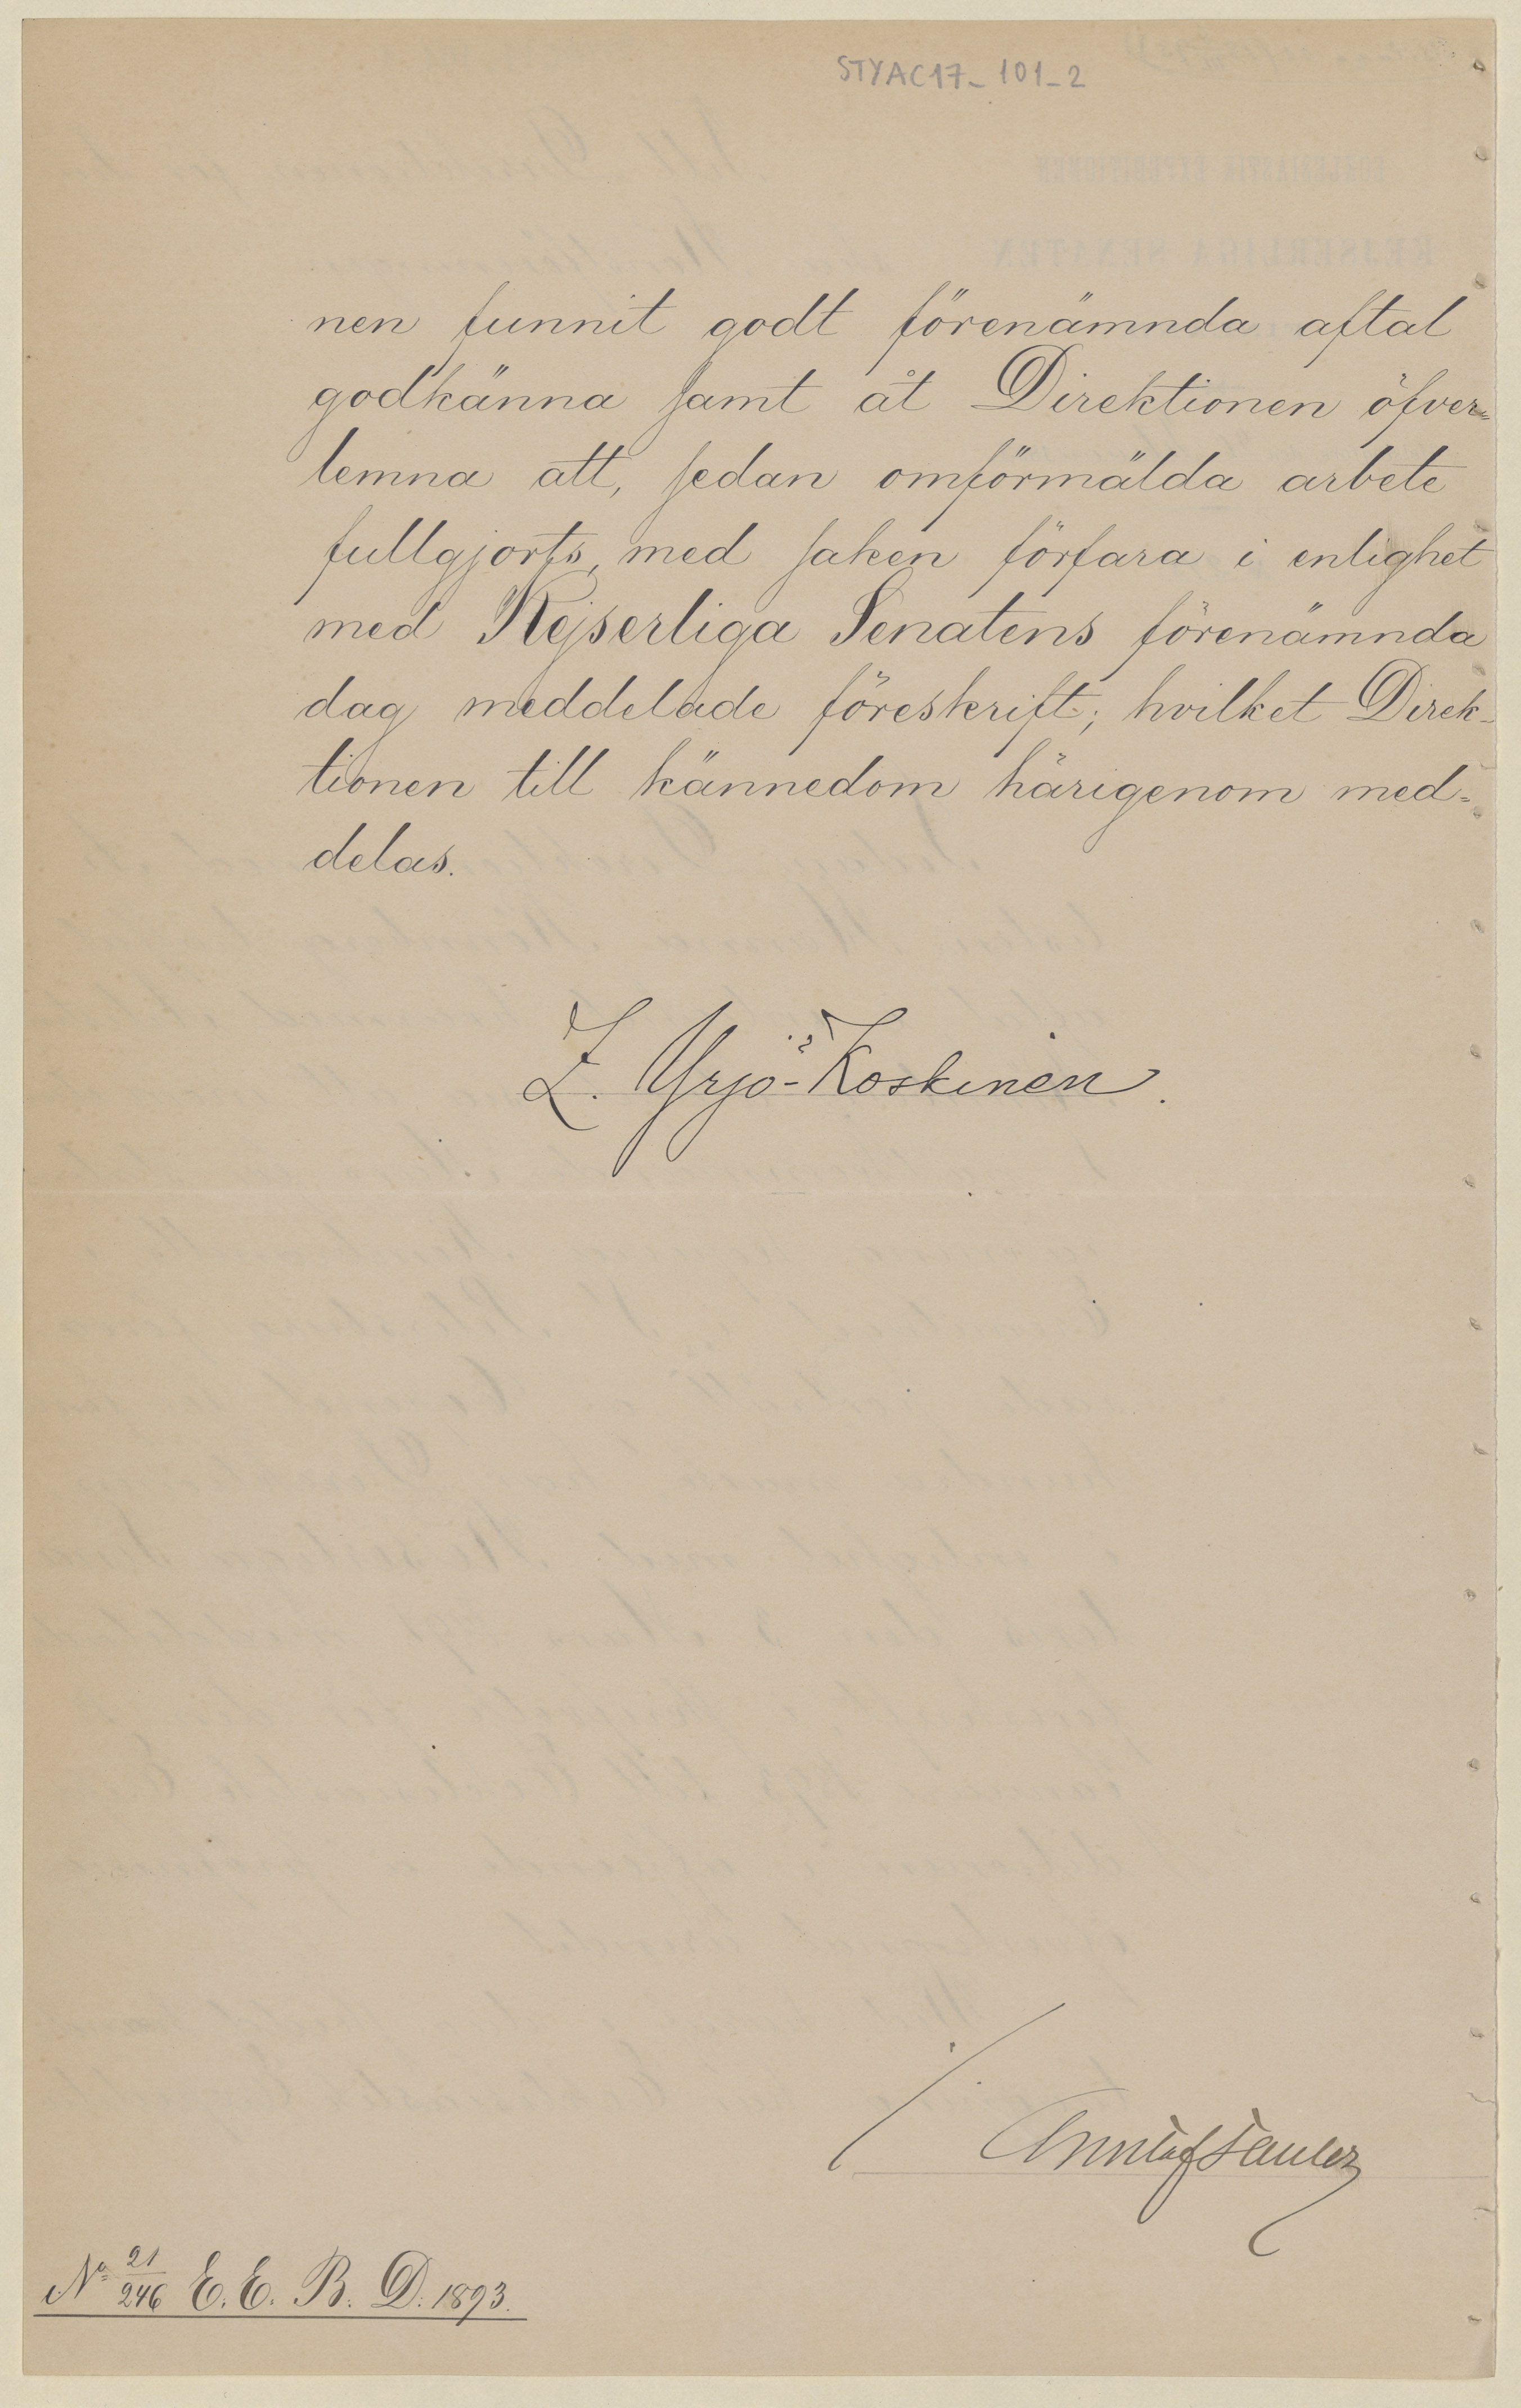 STYAC17_101_2
nen funnit godt förenämnda aftal
godkänna samt åt Direktionen öfver=
lemna att, sedan omförmälda arbete
fullgjorts, med saken förfara i enlighet
med Kejserliga Senatens förenämnda
dag meddelade föreskrift; hvilket Direk-
tionen till kännedom härigenom med=
delas.
Z. Yrjö-Koskinen.
№ 21/246 E. E. B. D. 1893.